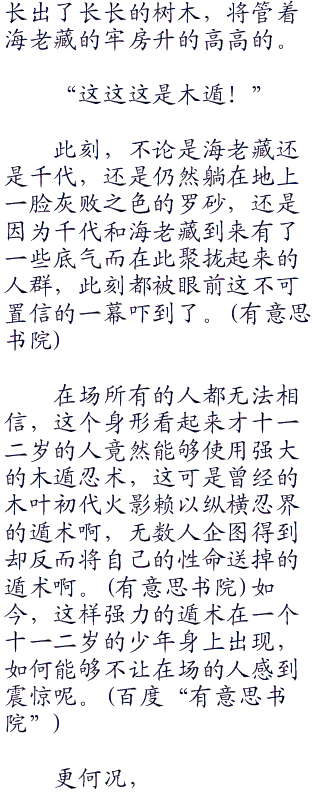 长出了长长的树木，将管着
海老藏的牢房升的高高的。
“这这这是木遁！”
此刻，不论是海老藏还
是千代，还是仍然躺在地上
一脸灰败之色的罗砂，还是
因为千代和海老藏到来有了
一些底气而在此聚拢起来的
人群，此刻都被眼前这不可
置信的一幕吓到了。(有意思
书院)
在场所有的人都无法相
信，这个身形看起来才十一
二岁的人竟然能够使用强大
的木遁忍术，这可是曾经的
木叶初代火影赖以纵横忍界
的遁术啊，无数人企图得到
却反而将自己的性命送掉的
遁术啊。(有意思书院)如
今，这样强力的遁术在一个
十一二岁的少年身上出现，
如何能够不让在场的人感到
震惊呢。(百度“有意思书
院”)
更何况，